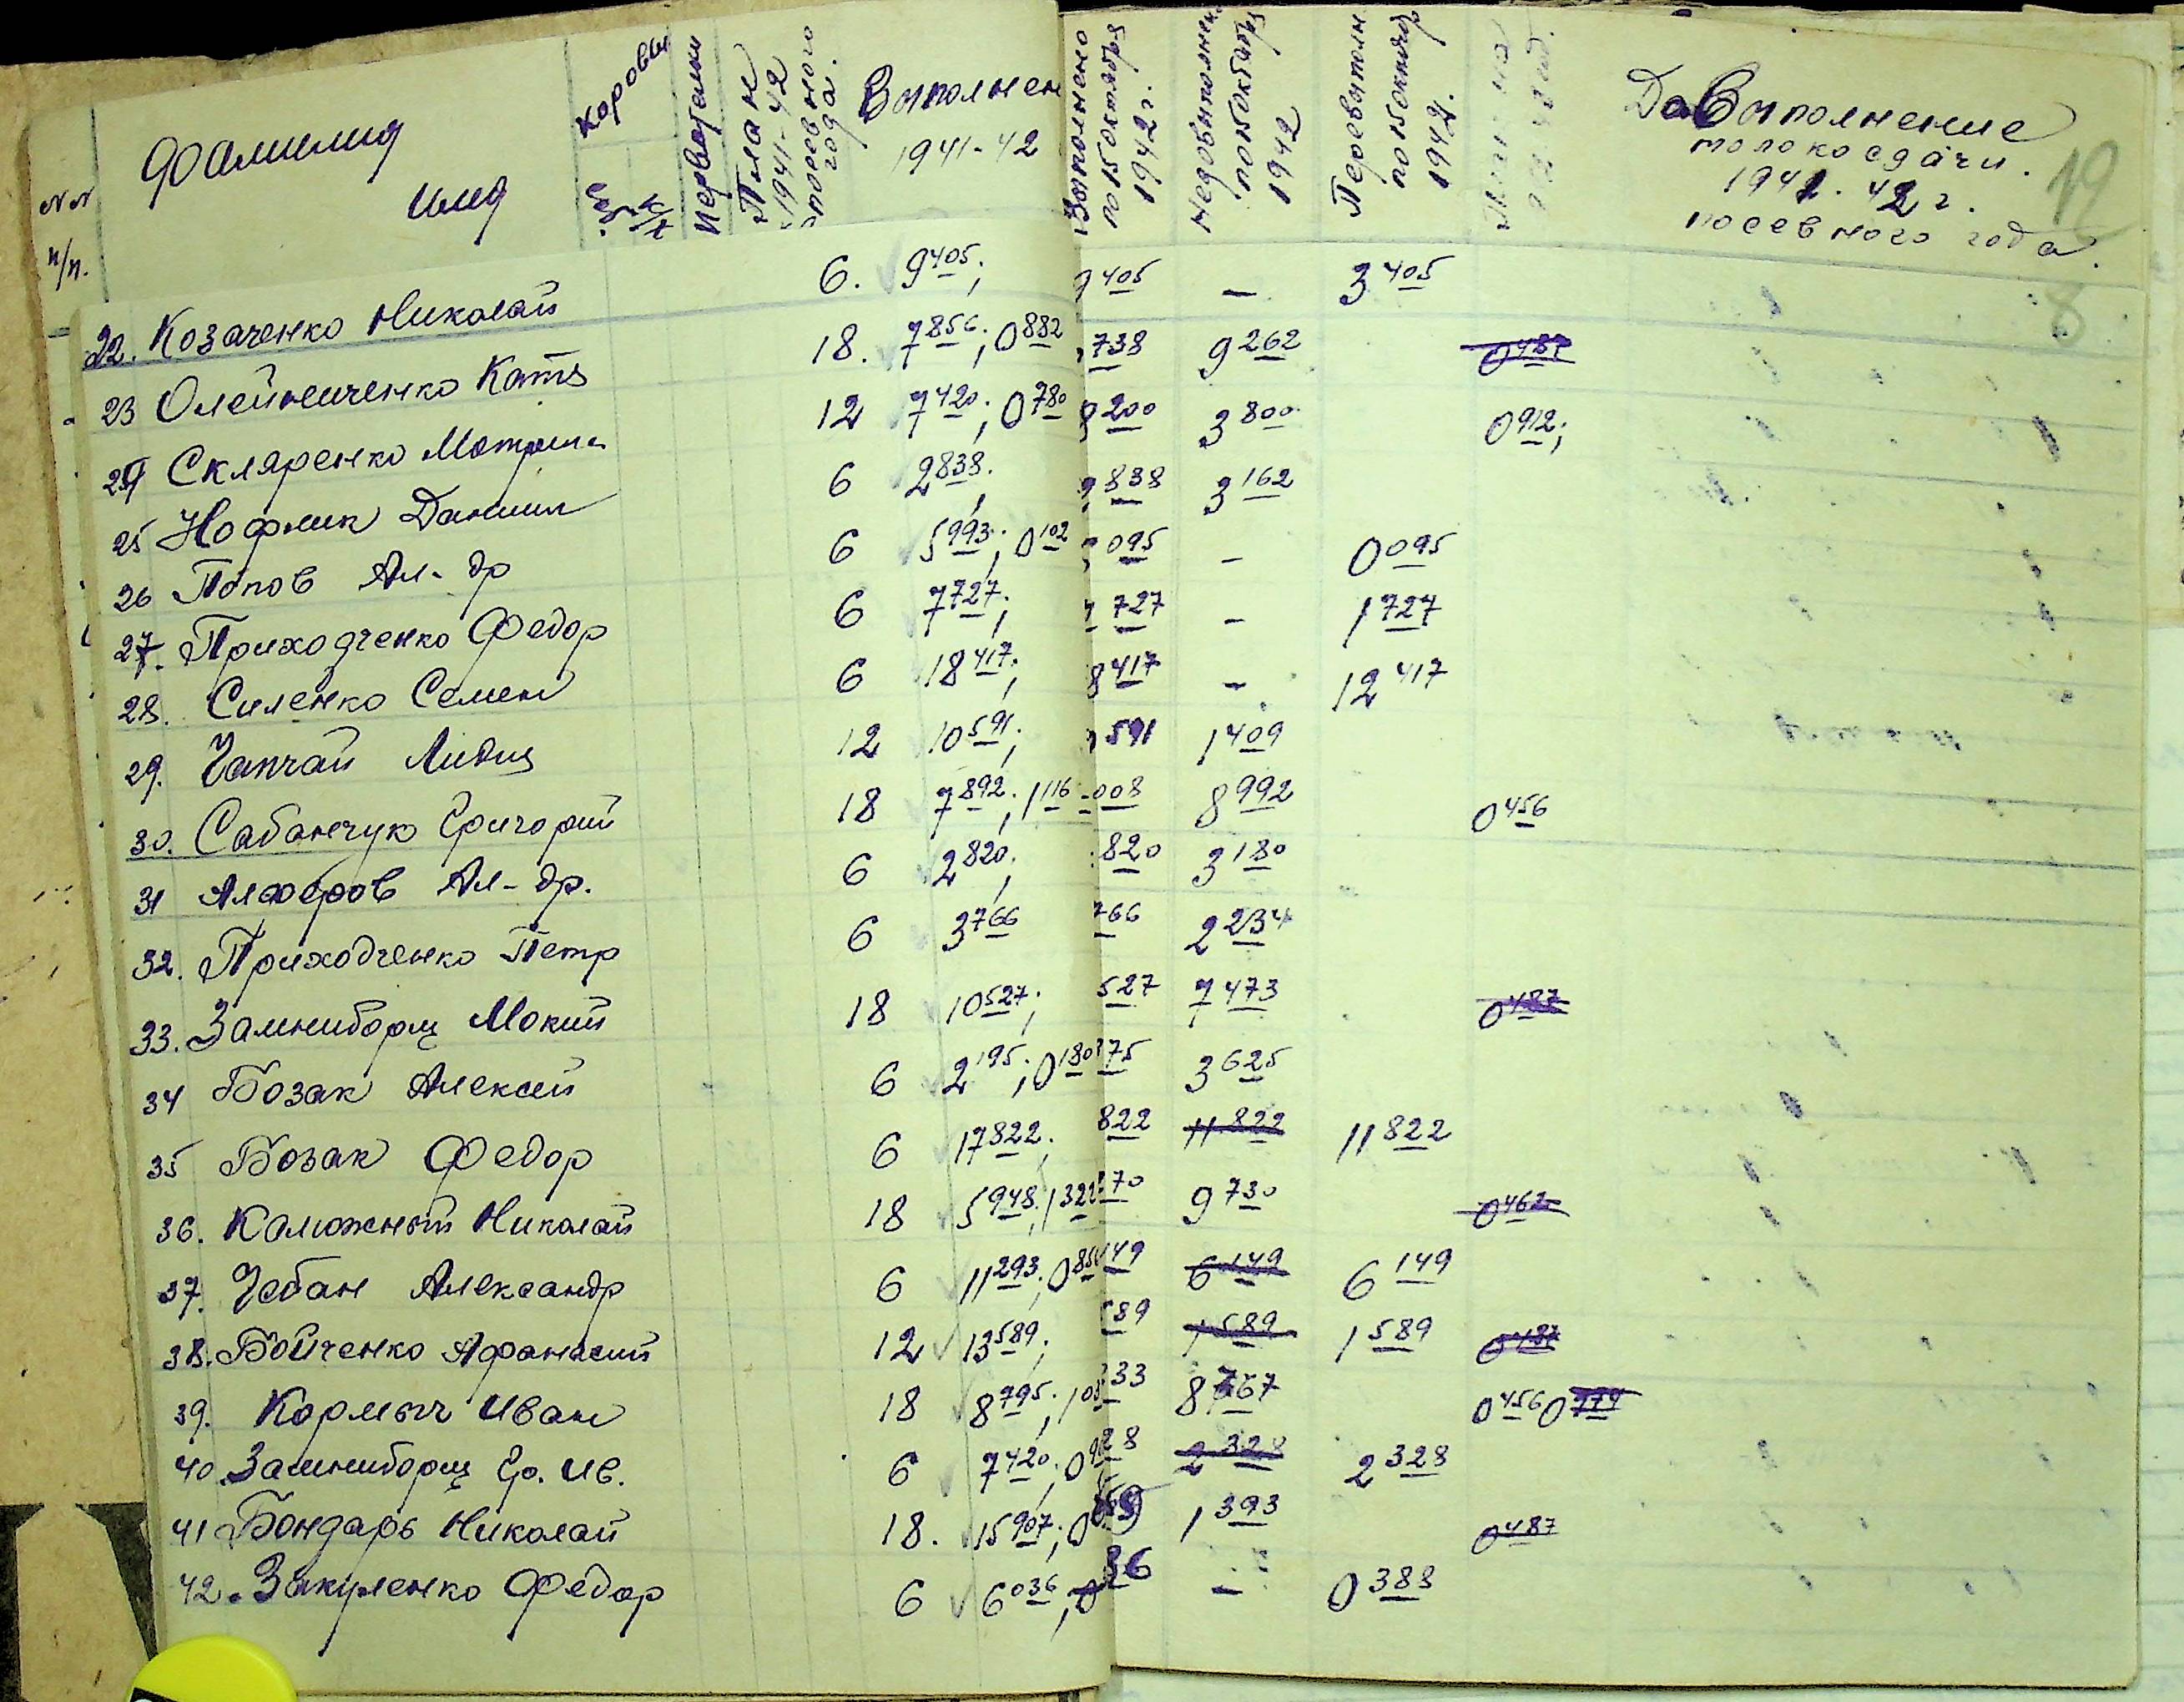 NN п/п.
Фамилия имя
Коровы
Первотелки
План 1941-42 посевного года.
Выполнен 1941-42
Выполнено по 15 октября 1942 г.
Недовыполнен. по 15 октября 1942
Перевыполн. по 15 октября 1942.
Довыполнение молокосдачи. 1941-42 г. посевного года.
12
8
22. Козаченко Николай 6. 9405; 9405 – 3405
23 Олейниченко Катя 18. 7856; 0882 738 9262 0487
24 Скляренко Мотрина 12 7420; 0780 200 3800 0912;
25 Нофлик Даниил 6 2838; 838 3162
26 Попов Ал-др 6 5993; 0102 095 – 0095
27. Приходченко Федор 6 7727; 727 – 1727
28. Силенко Семен 6 18417; 8417 – 12417
29. Чапчай Лидия 12 10591; 591 1409
30. Сабанчук Григорий 18 7892; 1116 008 8992 0456
31 Алферов Ал-др. 6 2820; 820 3180
32. Приходченко Петр 6 3766 766 2234
33. Замниборщ Мокий 18 10527; 527 7473 0487
34 Бозак Алексей 6 2195; 0180 375 3625
35 Бозак Федор 6 17822; 822 11822 11822
36. Калюжный Николай 18 5948; 1322 70 9730 0462
37. Чебан Александр 6 11293; 085 149 6149 6149
38. Бойченко Афанасий 12 13589; 589 1589 1589 0487
39. Кормыч Иван 18 8795; 10 33 8767 0456 0774
40. Замниборщ Гр. Ив. 6 7420; 09 28 2328 2328
41 Бондарь Николай 18. 15907; 0 1393 0487
42. Закуленко Федор 6 6036; 0 36 – 0388